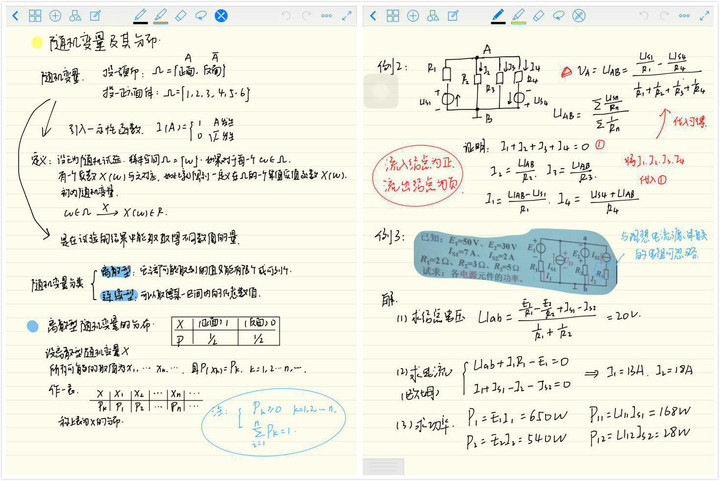 随机变量及其分布
A  Ā
随机变量  投一硬币: Ω={正面, 反面}
投一正六面体: Ω={1,2,3,4,5,6}
引入一示性函数. I(A)={ 1 A发生
0 Ā发生
定义: 设E为随机试验. 样本空间Ω={ω}. 如果对于每一个ω∈Ω.
有一个实数X(ω)与之对应, 这样就得到一定义在Ω的一个单值实值函数X(ω).
称为随机变量.
ω∈Ω —X→ X(ω)∈R.
是在试验的结果中能取数得不同数值的量.
随机变量分类
离散型: 它该可能取到的值只能有限个或可列个.
连续型: 可以取得某一区间内的任意数值.
离散型随机变量的分布.
X (正面)1 (反面)0
P 1/2 1/2
设离散型随机变量X
所有可能的取值为X₁, ··· Xₙ ···. 且P(Xₖ)=Pₖ. k=1,2···n,···
作一表.
X X₁ X₂ ··· Xₙ ···
Pₖ P₁ P₂ ··· Pₙ ···
称上表为X的分布.
注: { Pₖ≥0 k=1,2···n.
∑ Pₖ=1.
例2:
A
R₁ R₂ I₂ R₃ I₃ R₄ I₄
Us₁ Us₄
B
V_A=U_AB= (Us₁/R₁ − Us₄/R₄) / (1/R₁+1/R₂+1/R₃+1/R₄)
U_AB= ∑(Usₙ/Rₙ) / ∑(1/Rₙ)
证明: I₁+I₂+I₃+I₄=0 ①
I₂=U_AB/R₂. I₃=U_AB/R₃.
I₁=(U_AB−Us₁)/R₁. I₄=(Us₄+U_AB)/R₄
将I₁.I₂.I₃.I₄
代入①
流入结点为正.
流出结点为负.
例3:
已知: E₁=50 V、E₂=30 V
I_S1=7 A、I_S2=2 A
R₁=2 Ω、R₂=3 Ω、R₃=5 Ω
试求: 各电源元件的功率。
与理想电流源串联
的电阻可忽略
解.
(1) 求结点电压 Uab= (E₁/R₁ − E₂/R₂ + Is₁−Is₂) / (1/R₁+1/R₂) =20V.
(2) 求电流 { Uab+I₁R₁−E₁=0
I₁+Is₁−I₂−Is₂=0 ⇒ I₁=13A. I₂=18A
(3) 求功率. P₁=E₁I₁=650W P_I1=U_I1Is₁=168W
P₂=E₂I₂=540W P_I2=U_I2Is₂=28W